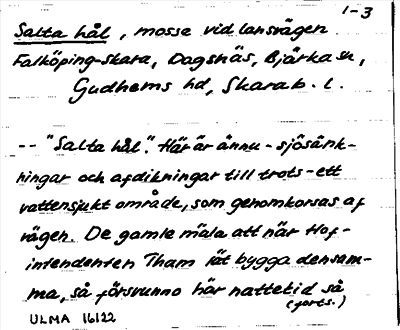 1-3
Salta hål, mosse vid lansvägen
Falköping-Skara, Dagsnäs, Bjärka sn,
Gudhems hd, Skarab. l.
-- "Salta hål". Här är ännu - sjösänk-
ningar och afdikningar till trots - ett
vattensjukt område, som genomkorsas af
vägen. De gamle mäla att när Hof-
intendenten Tham lät bygga densam-
ma, så försvunno här nattetid så
(forts.)
ULMA 16122